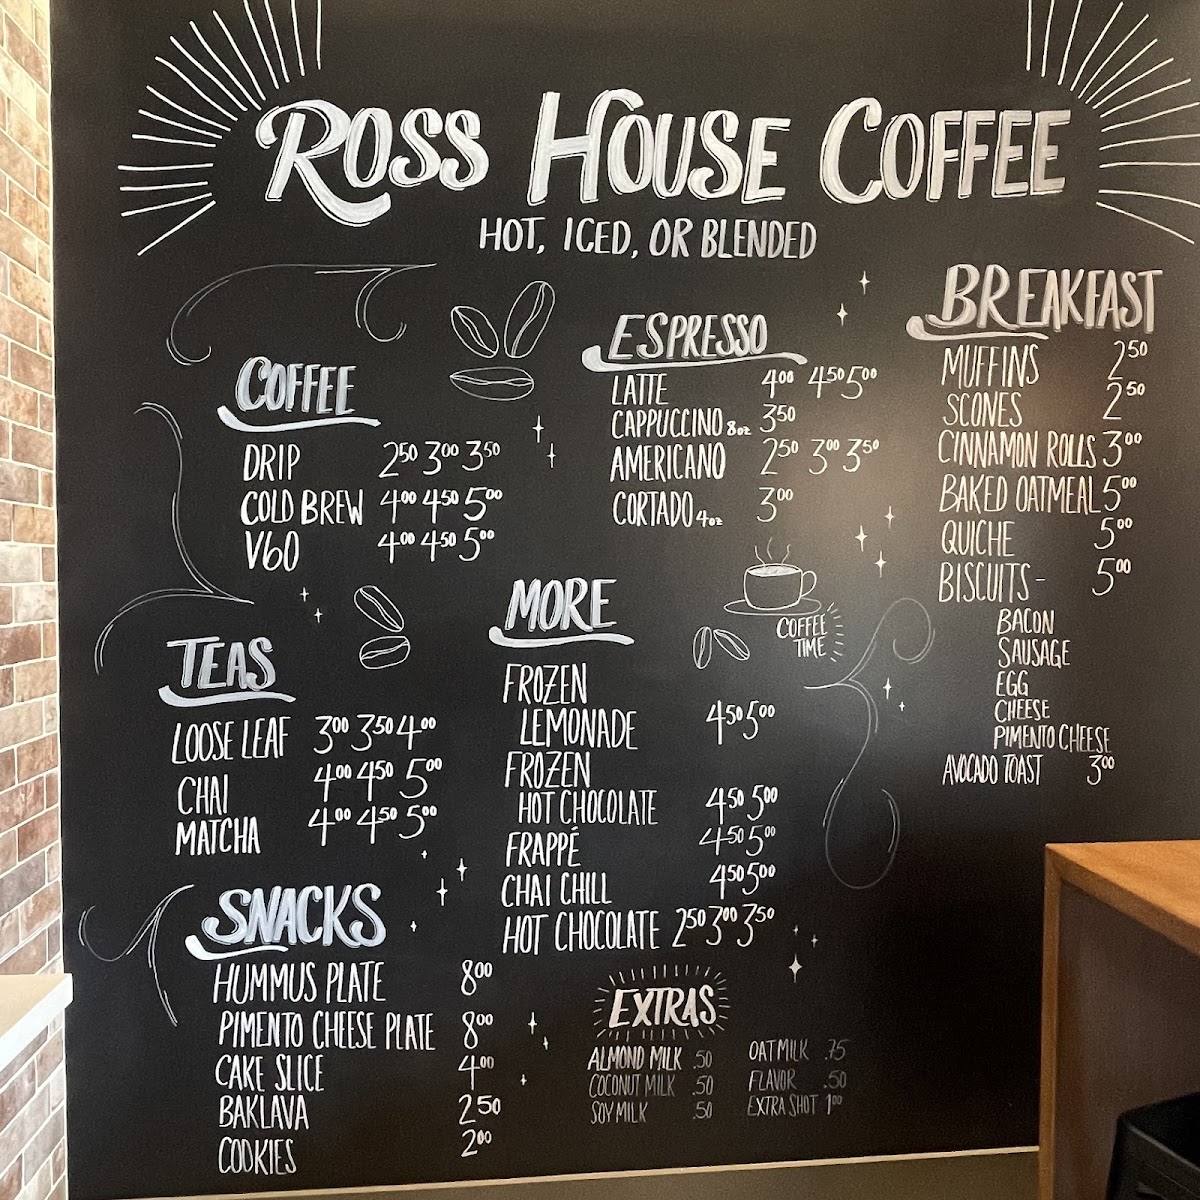 ROSS HOUSE COFFEE
HOT, ICED, OR BLENDED
COFFEE
DRIP 2.50 3.00 3.50
COLD BREW 4.00 4.50 5.00
V60 4.00 4.50 5.00
TEAS
LOOSE LEAF 3.00 3.50 4.00
CHAI 4.00 4.50 5.00
MATCHA 4.00 4.50 5.00
SNACKS
HUMMUS PLATE 8.00
PIMENTO CHEESE PLATE 8.00
CAKE SLICE 4.00
BAKLAVA 2.50
COOKIES 2.00
ESPRESSO
LATTE 4.00 4.50 5.00
CAPPUCCINO 8oz 3.50
AMERICANO 2.50 3.00 3.50
CORTADO 4oz 3.00
COFFEE
TIME
MORE
FROZEN
LEMONADE 4.50 5.00
FROZEN
HOT CHOCOLATE 4.50 5.00
FRAPPÉ 4.50 5.00
CHAI CHILL 4.50 5.00
HOT CHOCOLATE 2.50 3.00 3.50
EXTRAS
ALMOND MILK .50
COCONUT MILK .50
SOY MILK .50
OAT MILK .75
FLAVOR .50
EXTRA SHOT 1.00
BREAKFAST
MUFFINS 2.50
SCONES 2.50
CINNAMON ROLLS 3.00
BAKED OATMEAL 5.00
QUICHE 5.00
BISCUITS- 5.00
BACON
SAUSAGE
EGG
CHEESE
PIMENTO CHEESE
AVOCADO TOAST 3.00